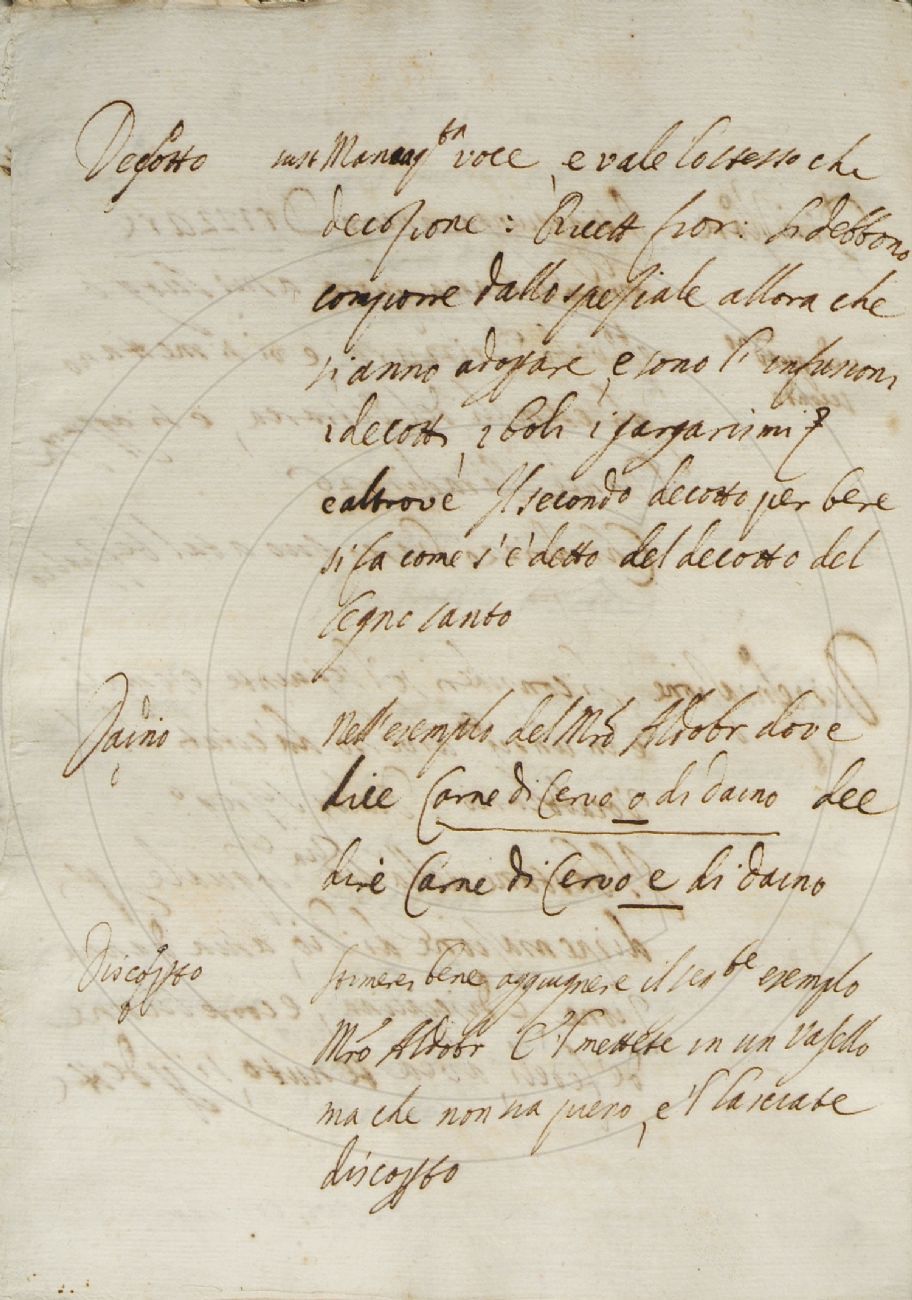 Decotto sust Manca q.ta voce, e vale lo stesso che
decozione: Ricett fior: si debbono
comporre dallo speziale allora che
si anno adoprare, e sono l'infusioni
i decotti, i boli i gargarismi
e altrove Il secondo decotto per bere
si fa come s'è detto del decotto del
legno santo
Daino Nell'esemplo del Mro Aldobr dove
dice Carne di Cervo o di daino dee
dire Carne di Cervo e di daino
Discoperto Stimerei bene aggiugnere il seg.te esemplo
Mro Aldobr E 'l mettete in un vasello
ma che non sia pieno, e 'l lasciate
discoperto